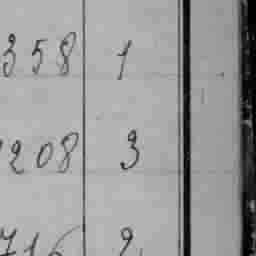 358 1
208 3
716 2